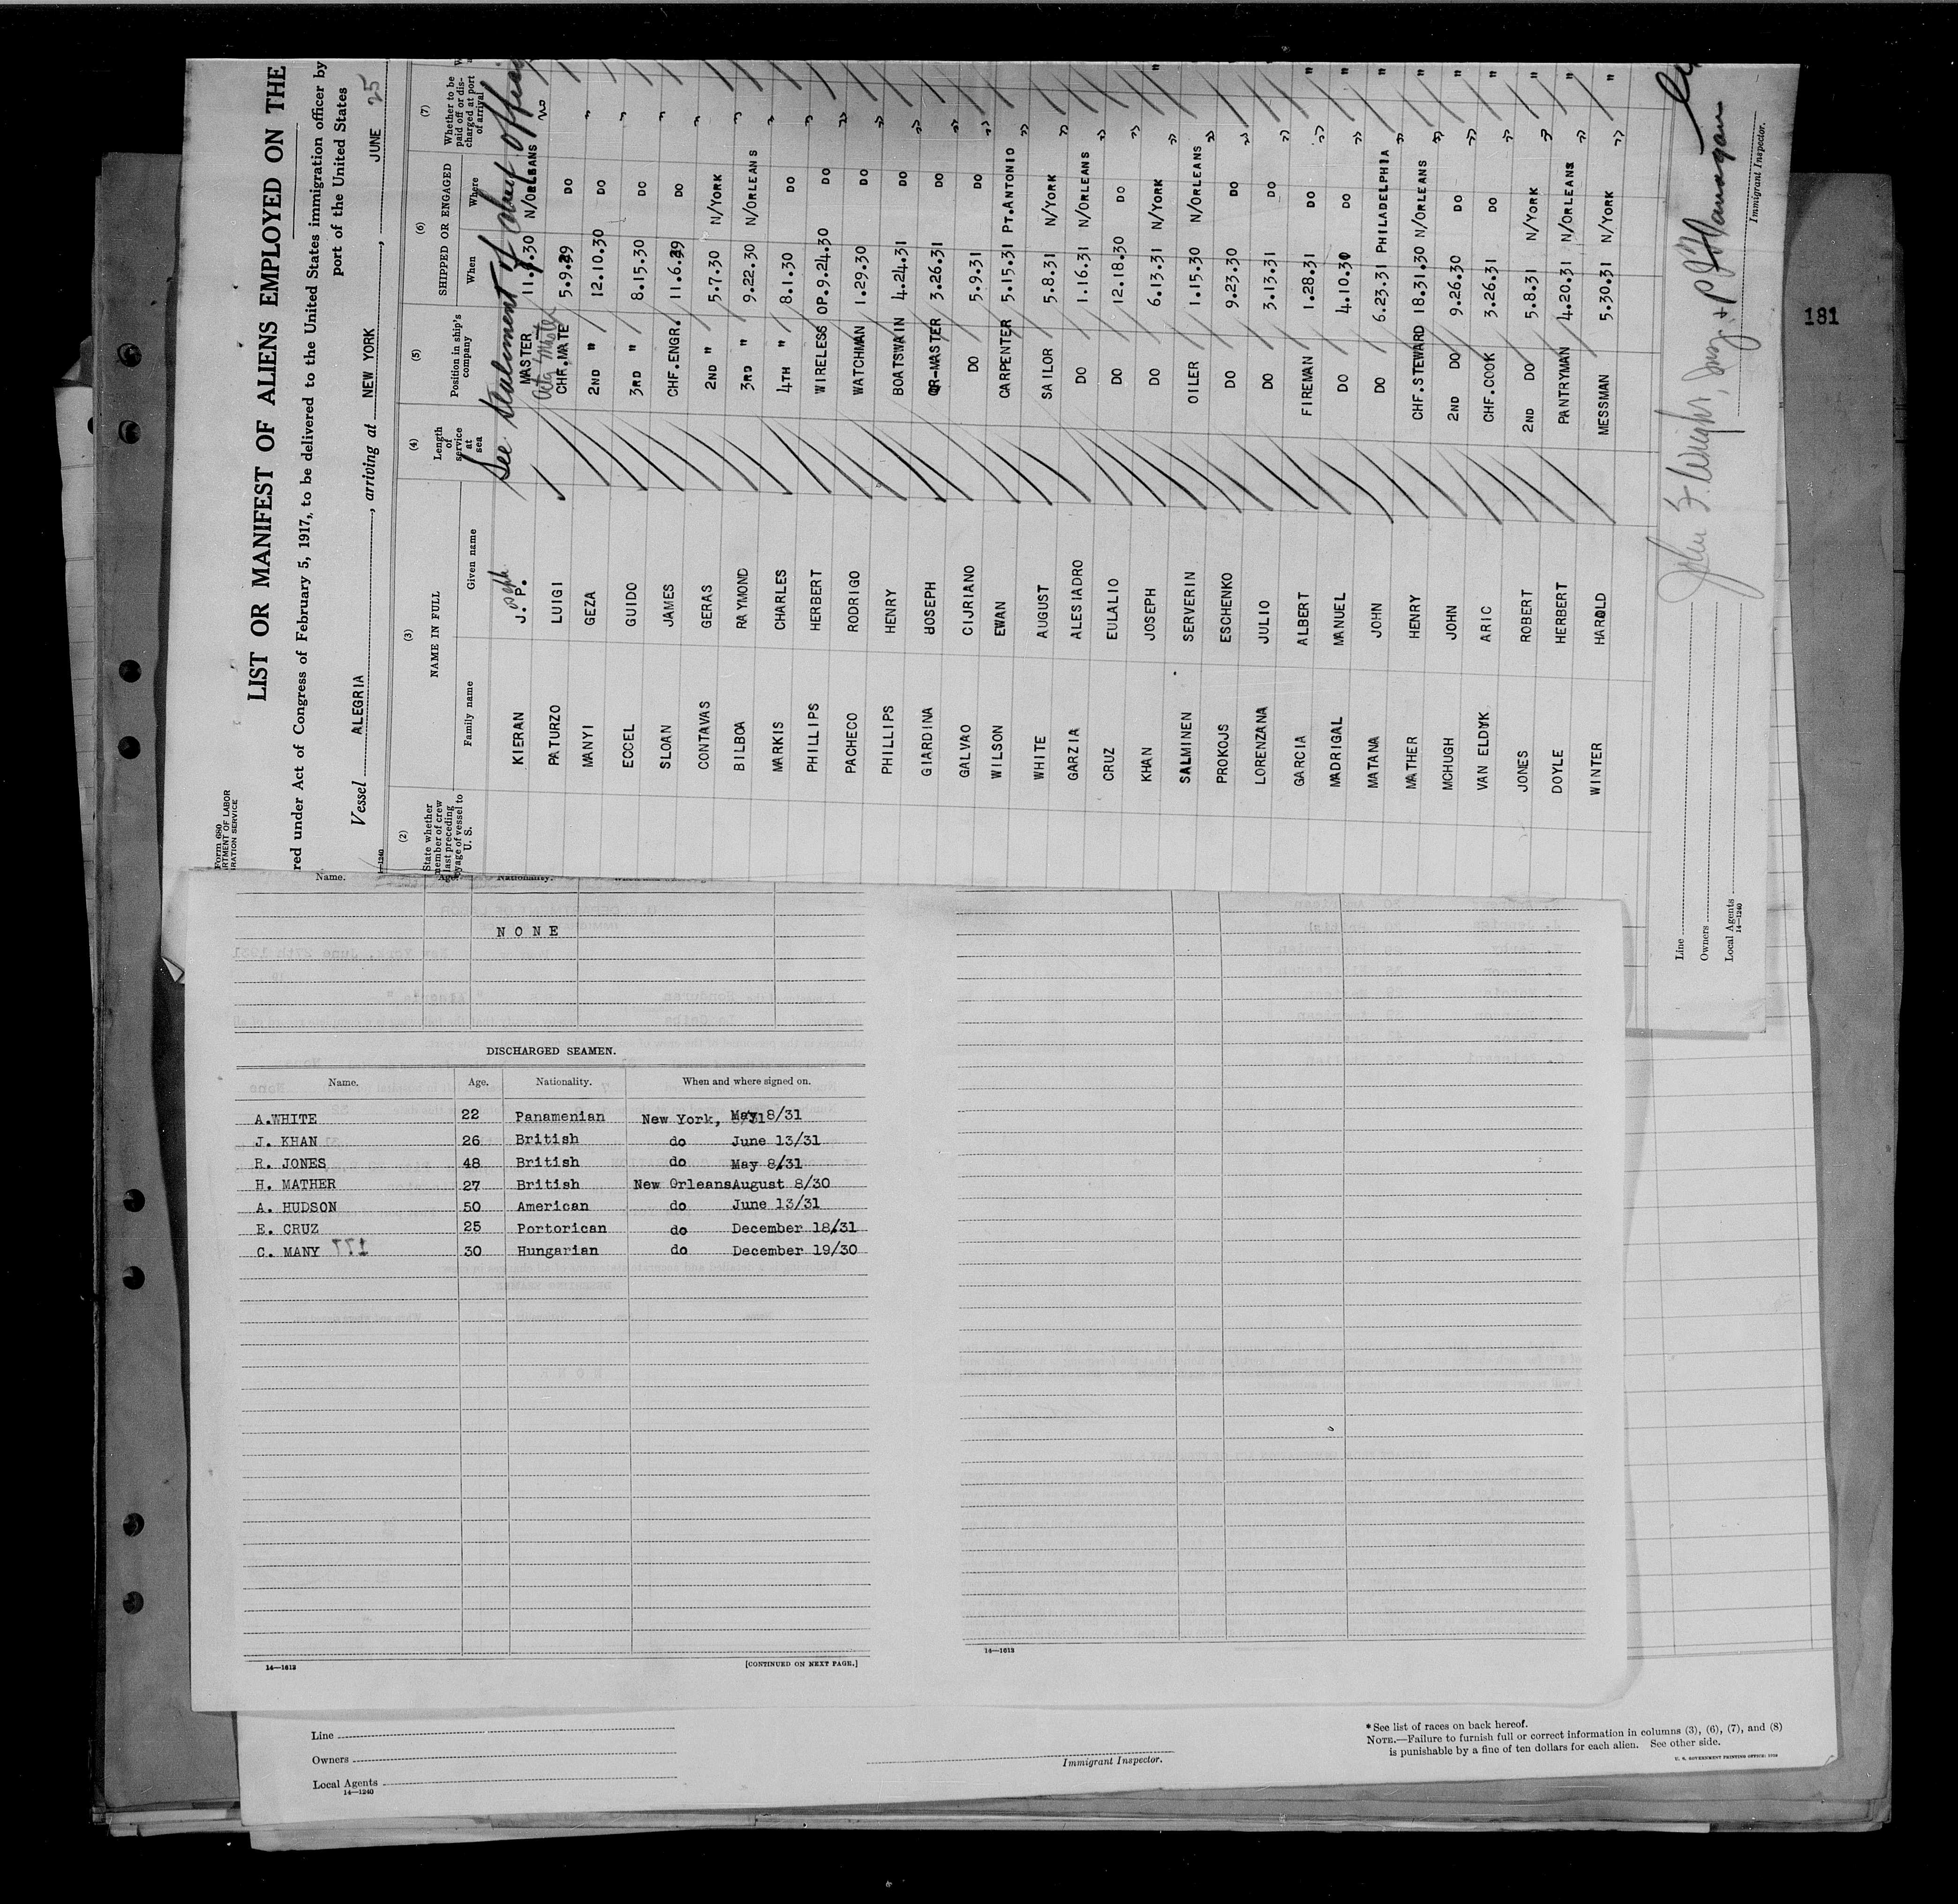 Form 680
RTMENT OF LABOR
IRATION SERVICE
LIST OR MANIFEST OF ALIENS EMPLOYED ON THE
red under Act of Congress of February 5, 1917, to be delivered to the United States immigration officer by
port of the United States
Vessel ALEGRIA, arriving at NEW YORK, JUNE 25
14—1240
(2) (3) (4) (5) (6) (7)
State whether member of crew last preceding voyage of vessel to U. S.
NAME IN FULL
Family name Given name
Length of service at sea
Position in ship's company
SHIPPED OR ENGAGED
When Where
Whether to be paid off or discharged at port of arrival
See statement of chief officer
KIERAN J. P. Joseph MASTER 11.9.30 N/ORLEANS no
PATURZO LUIGI CHF.MATE 5.9.29 DO "
MANYI GEZA 2ND " 12.10.30 DO "
ECCEL GUIDO 3RD " 8.15.30 DO "
SLOAN JAMES CHF.ENGR. 11.6.29 DO "
CONTAVAS GERAS 2ND " 5.7.30 N/YORK "
BILBOA RAYMOND 3RD " 9.22.30 N/ORLEANS "
MARKIS CHARLES 4TH " 8.1.30 DO "
PHILLIPS HERBERT WIRELESS OP. 9.24.30 DO "
PACHECO RODRIGO WATCHMAN 1.29.30 DO "
PHILLIPS HENRY BOATSWAIN 4.24.31 DO "
GIARDINA JOSEPH QR-MASTER 3.26.31 DO "
GALVAO CIJRIANO DO 5.9.31 DO "
WILSON EWAN CARPENTER 5.15.31 PT.ANTONIO "
WHITE AUGUST SAILOR 5.8.31 N/YORK "
GARZIA ALESIADRO DO 1.16.31 N/ORLEANS "
CRUZ EULALIO DO 12.18.30 DO "
KHAN JOSEPH DO 6.13.31 N/YORK "
SALMINEN SERVERIN OILER 1.15.30 N/ORLEANS "
PROKOJS ESCHENKO DO 9.23.30 DO "
LORENZANA JULIO DO 3.13.31 DO "
GARCIA ALBERT FIREMAN 1.28.31 DO "
MADRIGAL MANUEL DO 4.10.30 DO "
MATANA JOHN DO 6.23.31 PHILADELPHIA "
MATHER HENRY CHF.STEWARD 18.31.30 N/ORLEANS "
MCHUGH JOHN 2ND DO 9.26.30 DO "
VAN ELDYK ARIC CHF.COOK 3.26.31 DO "
JONES ROBERT 2ND DO 5.8.31 N/YORK "
DOYLE HERBERT PANTRYMAN 4.20.31 N/ORLEANS "
WINTER HAROLD MESSMAN 5.30.31 N/YORK "
John F. Wright,
Line
Owners
Local Agents
14—1240
Immigrant Inspector.
181
Name. Age. Nationality.
NONE
DISCHARGED SEAMEN.
Name. Age. Nationality. When and where signed on.
A.WHITE 22 Panamenian New York, May 8/31
J. KHAN 26 British do June 13/31
R. JONES 48 British do May 8/31
H. MATHER 27 British New Orleans August 8/30
A. HUDSON 50 American do June 13/31
E. CRUZ 25 Portorican do December 18/31
C. MANY 30 Hungarian do December 19/30
177
14—1613
[CONTINUED ON NEXT PAGE.]
14—1613
Line
Owners
Local Agents
14—1240
Immigrant Inspector.
*See list of races on back hereof.
NOTE.—Failure to furnish full or correct information in columns (3), (6), (7), and (8)
is punishable by a fine of ten dollars for each alien. See other side.
U. S. GOVERNMENT PRINTING OFFICE: